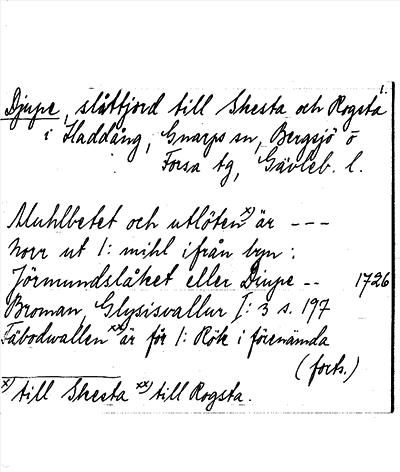 1.
Djupe, slåttjord till Skesta och Rogsta
i Haddång, Gnarps sn, Bergsjö o
Forsa tg, Gävleb. l.
Muhlbetet och utlöten x) är ---
norr ut 1: mihl ifrån byn:
Jörmundslåket eller Diupe -- 1726
Broman, Glysisvallur I: 3 s. 197
Fäbodwallen xx) är för 1: Rök i förenämda
(forts.)
x) till Skesta xx) till Rogsta.